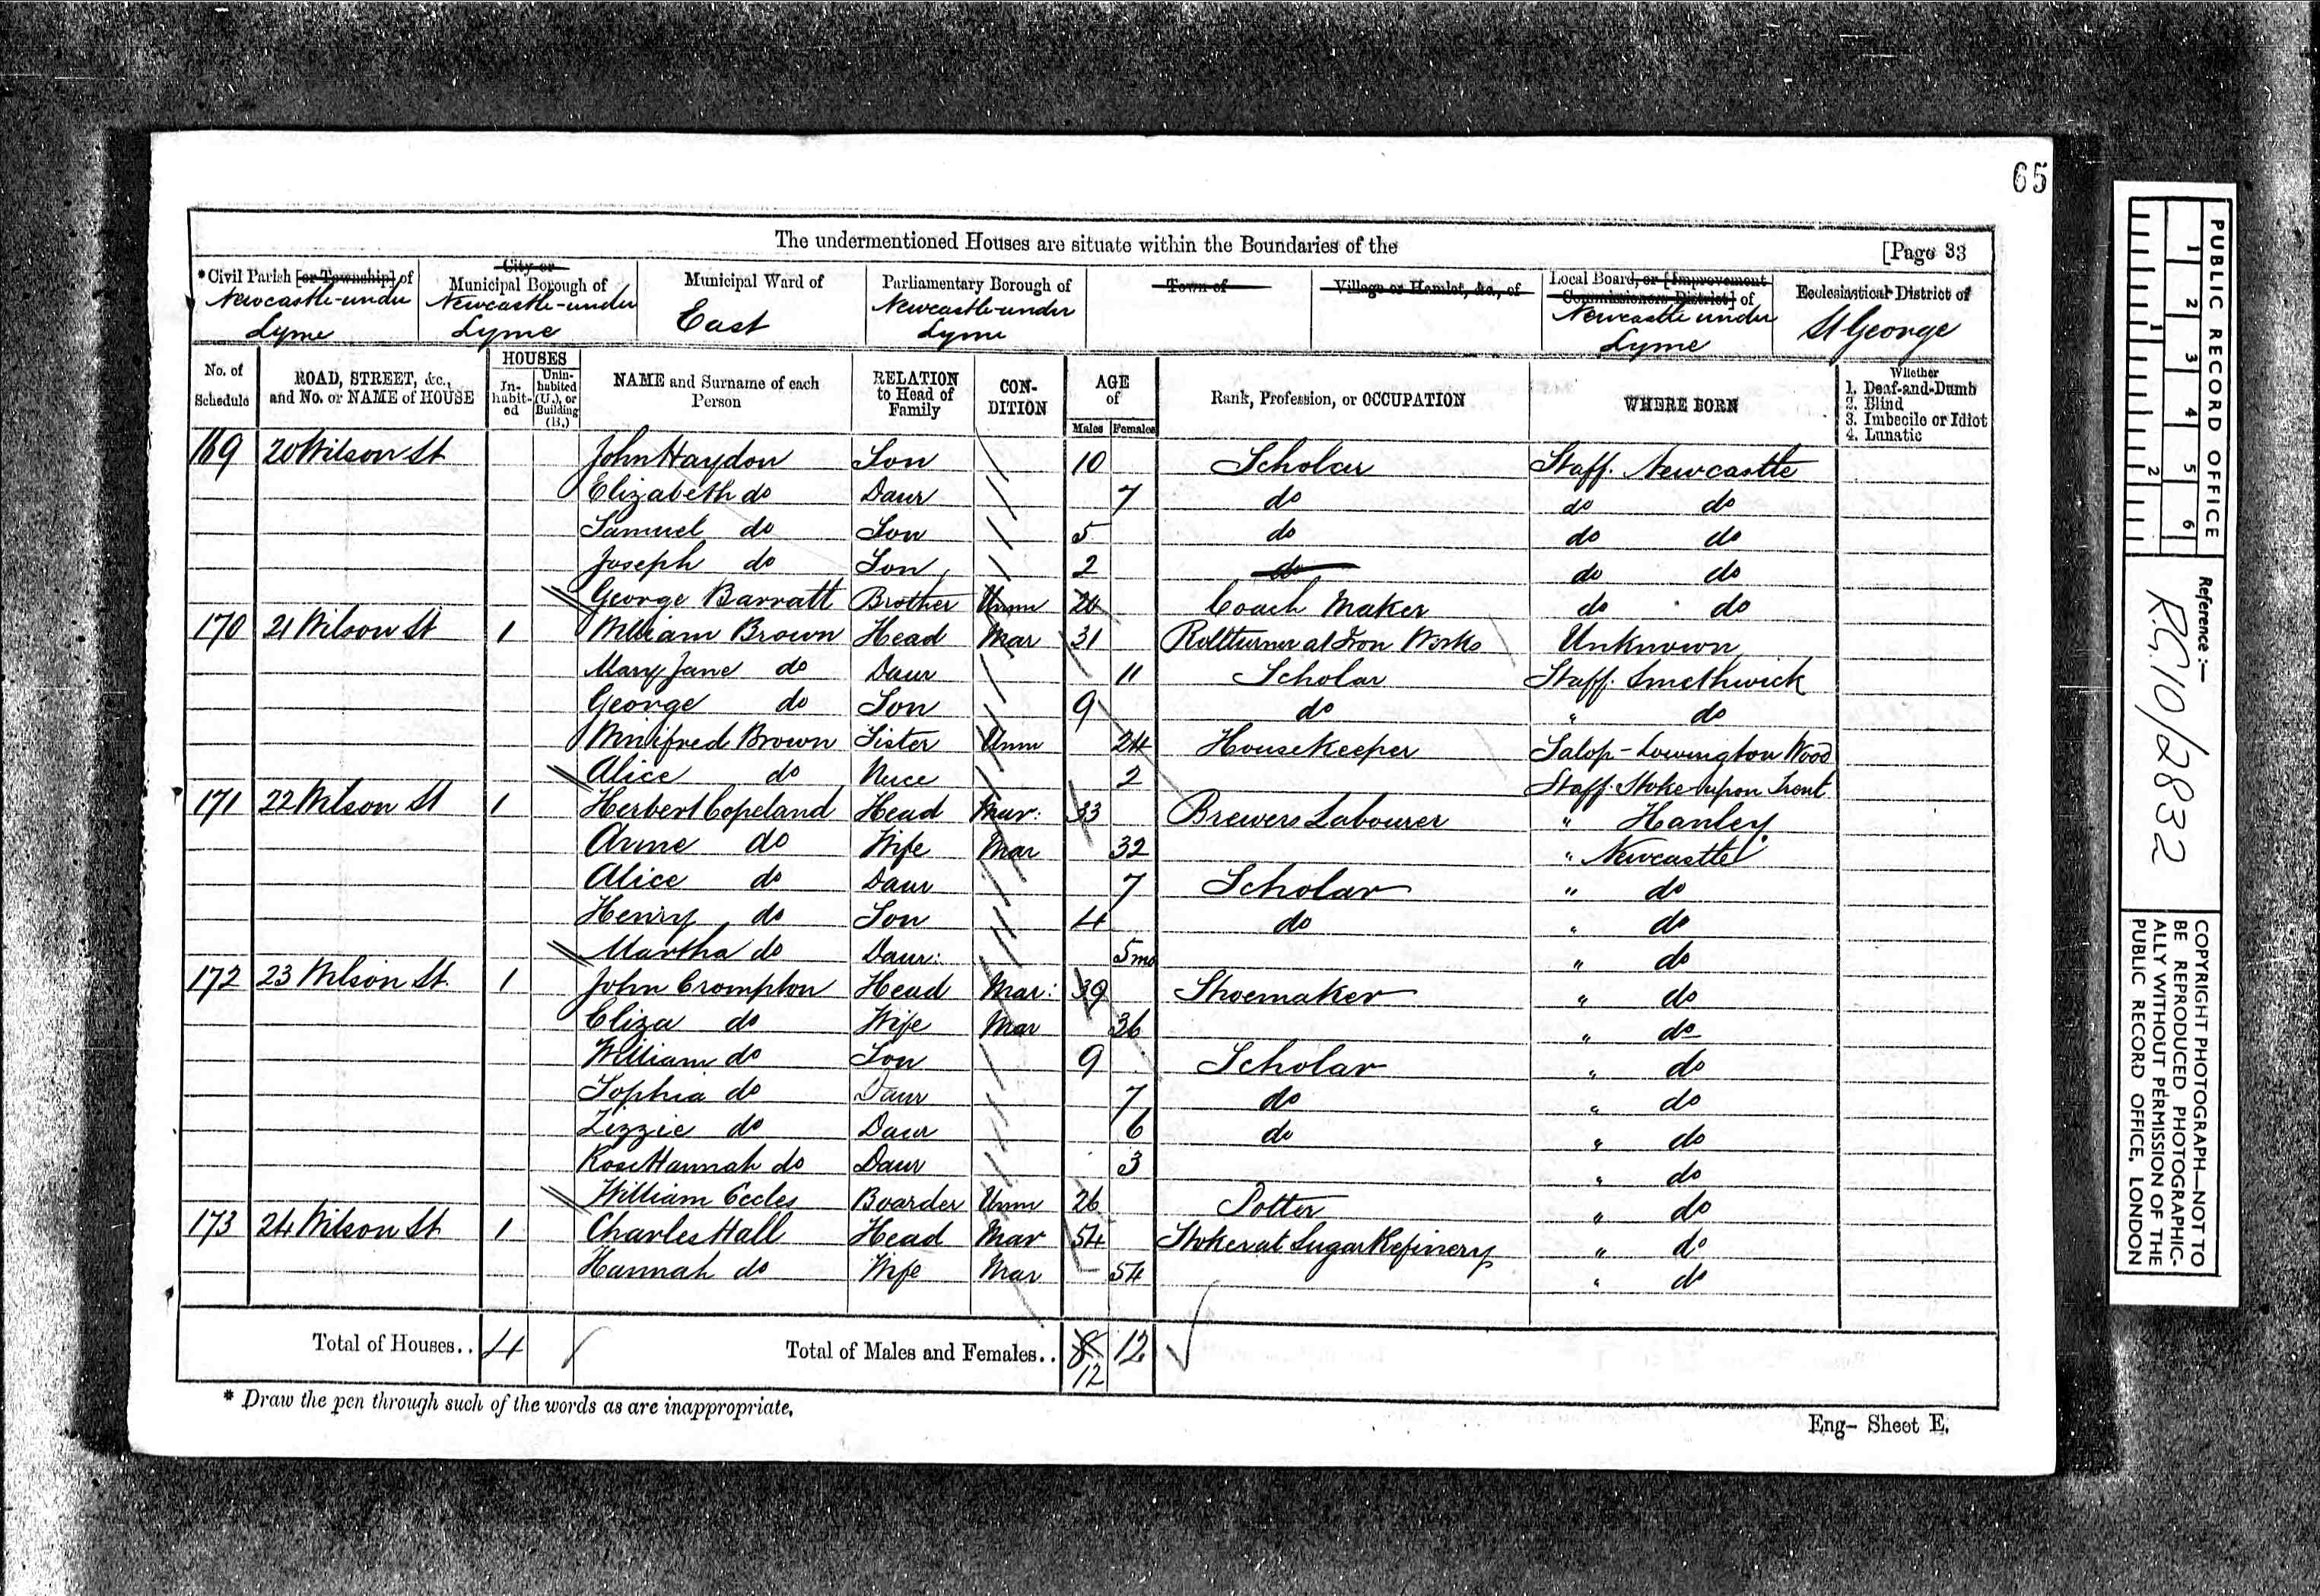 65
The undermentioned Houses are situate within the Boundaries of the [Page 33
*Civil Parish [or Township] of Newcastle-under Lyme
City or Municipal Borough of Newcastle-under Lyme
Municipal Ward of East
Parliamentary Borough of Newcastle-under Lyme
Town of
Village or Hamlet, &c., of
Local Board, or [Improvement Commissioners District] of Newcastle under Lyme
Ecclesiastical District of St George
No. of Schedule
ROAD, STREET, &c., and No. or NAME of HOUSE
HOUSES
In-habit-ed
Unin-habited (U.), or Building (B.)
NAME and Surname of each Person
RELATION to Head of Family
CON-DITION
AGE of
Males Females
Rank, Profession, or OCCUPATION
WHERE BORN
Whether
1. Deaf-and-Dumb
2. Blind
3. Imbecile or Idiot
4. Lunatic
169 20 Wilson St John Haydon Son 10 Scholar Staff. Newcastle
Elizabeth do Daur 7 do do do
Samuel do Son 5 do do do
Joseph do Son 2 do do do
George Barratt Brother Unm Coach Maker do do
170 21 Wilson St 1 William Brown Head Mar 31 Rollturner at Iron Works Unknown
Mary Jane do Daur 11 Scholar Staff. Smethwick
George do Son 9 do " do
Winifred Brown Sister Unm 24 Housekeeper Salop - Wood
Alice do Niece 2 Staff. Stoke upon Trent
171 22 Wilson St 1 Herbert Copeland Head Mar: 33 Brewers Labourer " Hanley
Anne do Wife Mar 32 " Newcastle
Alice do Daur 7 Scholar " do
Henry do Son 4 do " do
Martha do Daur: 5mo " do
172 23 Wilson St. 1 John Crompton Head Mar: 39 Shoemaker " do
Eliza do Wife Mar 36 " do
William do Son 9 Scholar " do
Sophia do Daur 7 do " do
Lizzie do Daur 6 do " do
Rose Hannah do Daur 3 " do
William Eccles Boarder Unm 26 Potter " do
173 24 Wilson St 1 Charles Hall Head Mar 54 Stoker at Sugar Refinery " do
Hannah do Wife Mar 54 " do
Total of Houses.. 4 Total of Males and Females.. 8 12
12
* Draw the pen through such of the words as are inappropriate.
Eng- Sheet E.
PUBLIC RECORD OFFICE
1 2 3 4 5 6
1 2
Reference:—
R.G. 10/2832
COPYRIGHT PHOTOGRAPH—NOT TO
BE REPRODUCED PHOTOGRAPHIC-
ALLY WITHOUT PERMISSION OF THE
PUBLIC RECORD OFFICE, LONDON